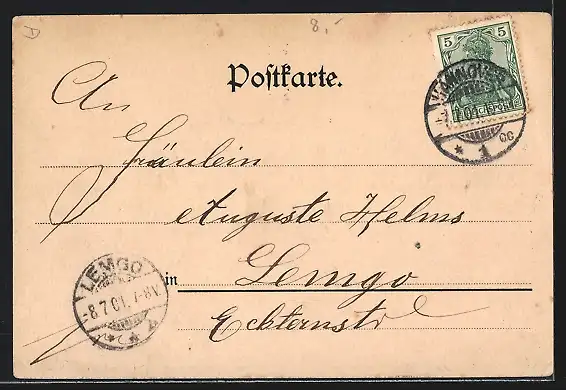 8,-
5
Postkarte.
HANNOVER
1
An
Fräulein
Auguste Helms
in Lemgo
Echternstr
LEMGO
-8.7.01. 7-8V.